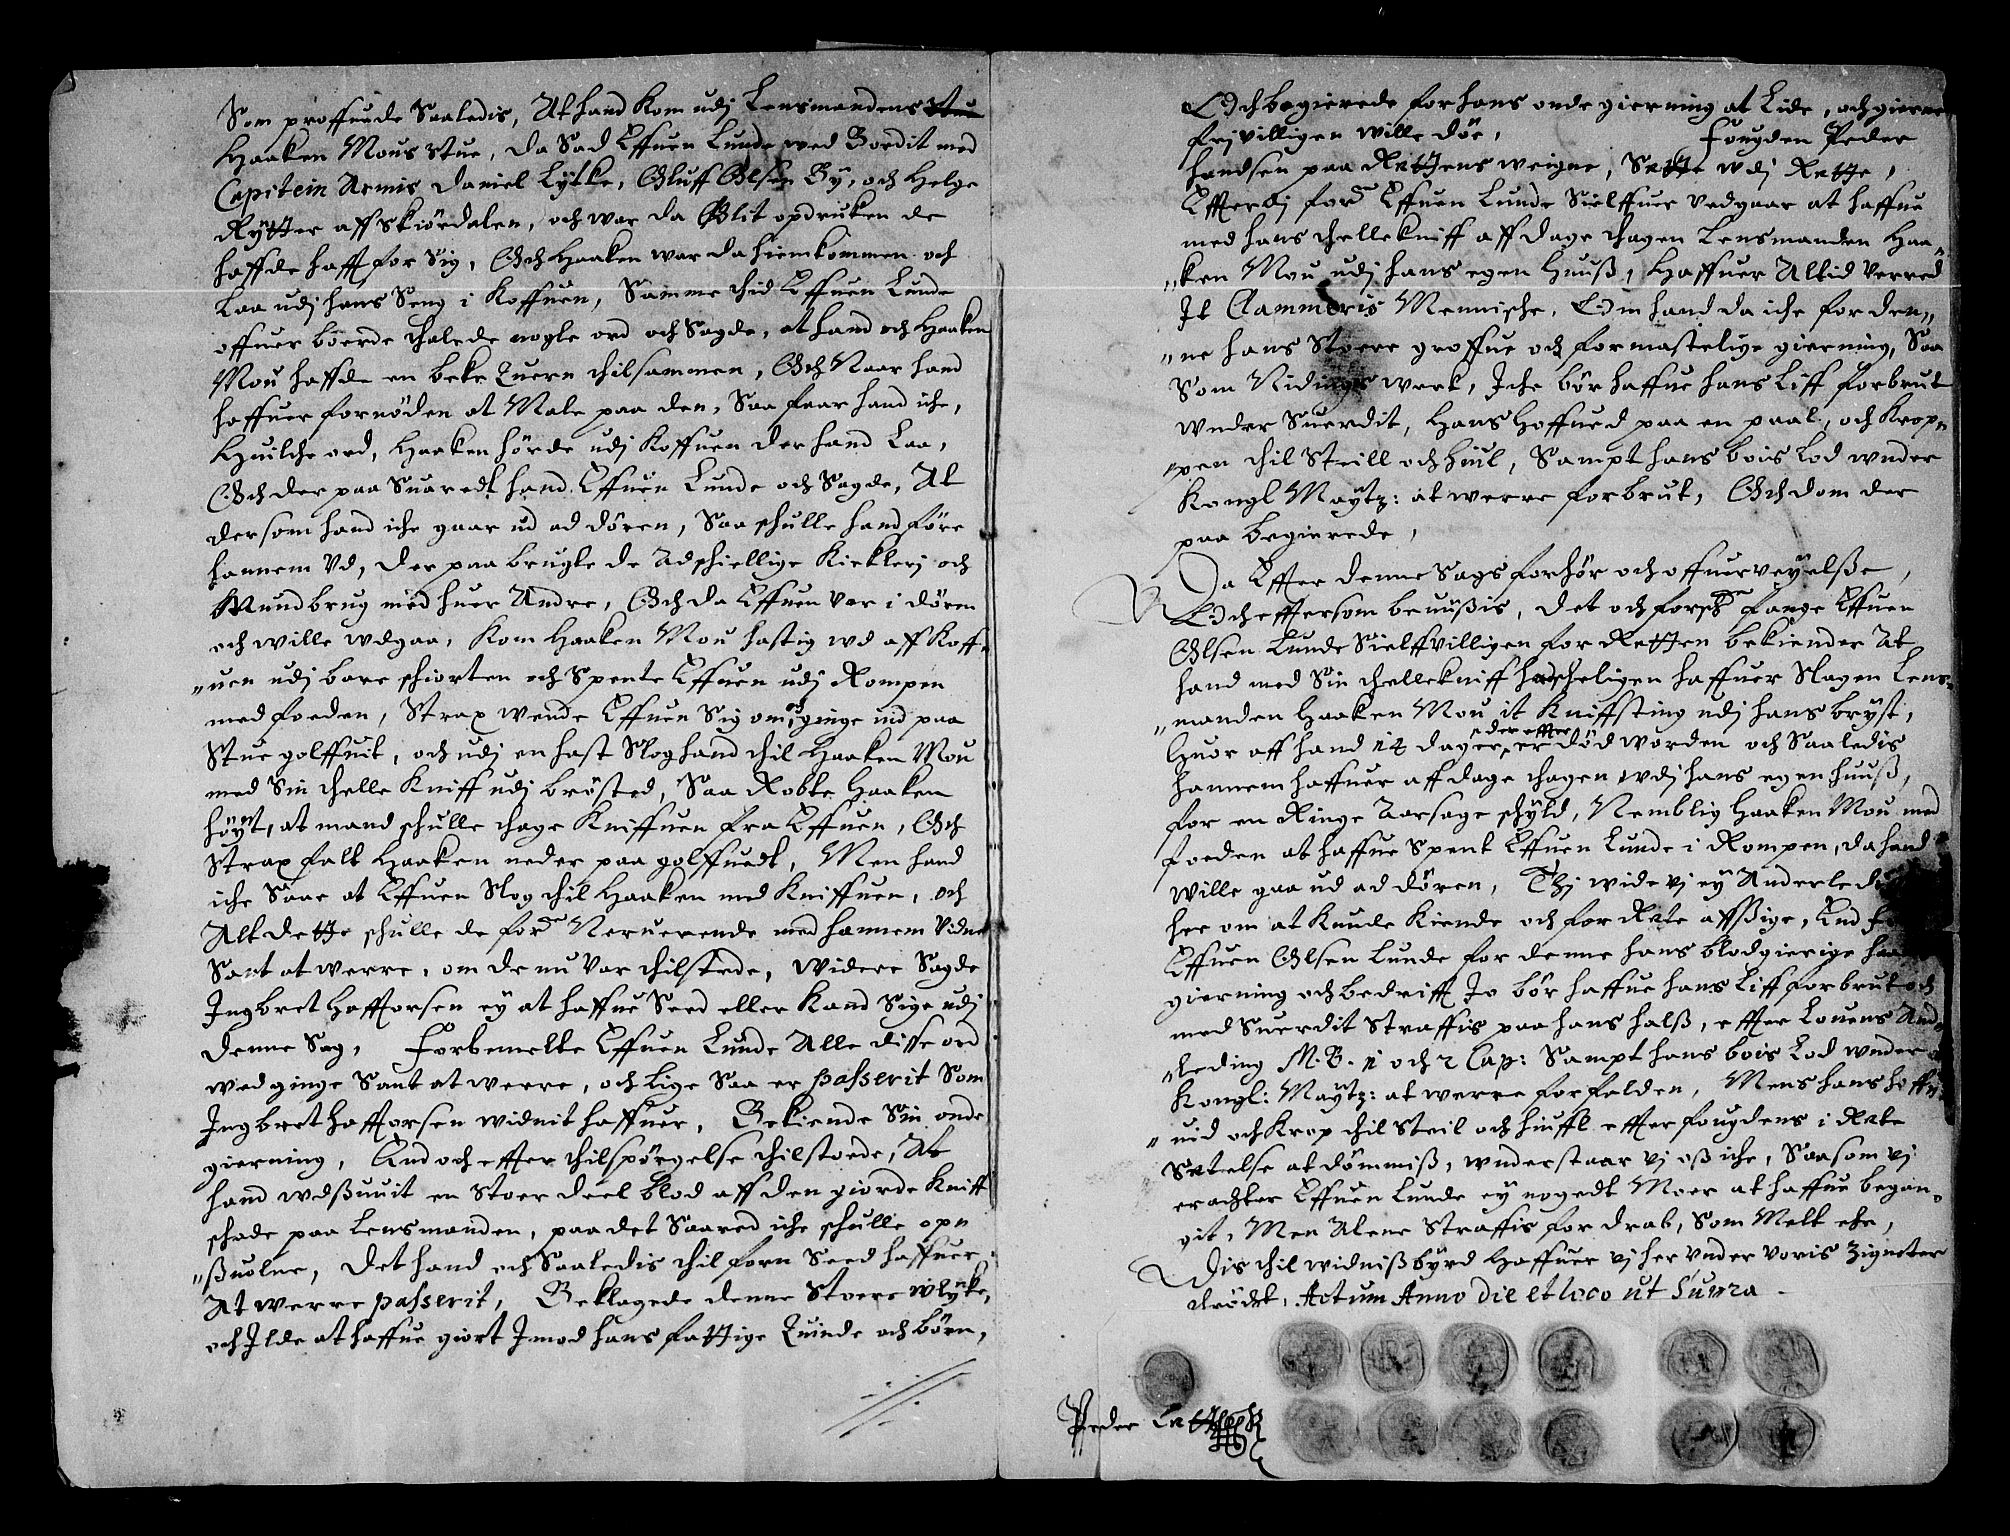 Som proffuede Saaledis, At hand kom udj Lensmandens stue
Haaken Mous stue, da Sad Effuen Lunde wed Bordit med
Capitein Armis Daniel Lytke, Oluff Olsen By, och Helge
Rytter aff Skiördalen, och war da Ølit opdruken de
haffde hafft for Sig, Och Haaken war da hiemkommen och
Laa udj hans Seng i Koffuen, Samme thid Effuen Lunde
offuer boerde thalede nogle ord och Sagde, at hand och Haaken
Mou haffde en beke Quern thilsammen, Och Naar hand
haffuer fornöden at Male paa den, Saa faar hand iche,
Huilche ord, Haaken hörde udj Koffuen der hand Laa,
Och der paa Suaredt hand Effuen Lunde och Sagde, At
dersom hand iche gaar ud ad dören, Saa schulle hand före
hannem Vd, Der paa brugte de Adschiellige Kieklerj och
Mundbrug med huer Andre, Och da Effuen Var i dören
och wille udgaa, Kom Haaken Mou hastig ud aff Koff-
"uen udj bare schiorten och Spente Effuen udj Rompen
med foeden, Strax wende Effuen Sig om, och ginge ind paa
Stue golffuit, och udj en hast Slog hand thil Haaken Mou
med Sin thelle Kniff udj brösted, Saa Robte Haaken
höyt, at mand schulle thage Kniffuen fra Effuen, Och
Strax falt Haaken neder paa golffuedt, Men hand
iche Saae at Effuen Slog thil Haaken med Kniffuen, och
Alt dette schulle de forde Nerverende med hannem Vidne
Sant at werre, om de nu Var thilstede, Widere Sagde
Ingbret Haftorsen ey at haffue Seed eller Kand Sige udj
denne Sag, Forbemelte Effuen Lunde Alle disse ord
wedginge Sant at werre, och Lige Saa er passerit Som
Ingbret Haftorsen widnit haffuer, Bekiende Sin onde
gierning, And och effter thilspörgelse thilstoede, At
hand udßuuit en Stoer deel blod aff den giorde Kniff
schade paa Lensmanden, paa det Saared iche schulle op
"ßuolne, Det hand och Saaledis thil forn Seed haffuer
At werre passerit, Beklagede denne Stoere wlyke,
och Ilde at haffue giort Jmod hans fattige Quinde och börn,
Och begierede for hans onde gierning at Lide, och gierne
frivilligen wille döe, Fougden Peder
Handsen paa Rettens weigne, Sette udj Rette,
Effterdj forde Effuen Lunde Sielffuer Vedgaar at haffue
med hans thellekniff aff dage thagen Lensmanden Haa-
"ken Mou udj hans egen Huuß, Haffuer Altid Verred
Jt Clammeris Mennische, Om hand da iche for den-
"ne hans Stoere groffue och formastelige gierning, Saa
Som Nidings werk, Jche bör haffue hans Liff forbrut
under Suerdit, Hans Hoffued paa en paal, och Krop-
"pen thil Steill och Hiul, Sampt hans bois Lod under
Kongl Maytz: at werre forbrut, Och dom der
paa begierede,
Da Effter denne Sags forhör och offuerveyelße,
Och effersom beuüßis, det och forschne fange Effuen
Olsen Lunde Sielffvilligen for Retten bekiender At
hand med Sin thellekniff hadscheligen haffuer Slagen Lens-
"manden Haaken Mou it Kniffsting udj hans bryst,
huor aff hand 14 dager der effter er död worden och Saaledis
hannem haffuer aff dage thagen udj hans egen huuß,
for en Ringe Aarsage schyld, Nemblig Haaken Mou med
foeden at haffue Spent Effuen Lunde i Rompen, da hand
wille gaa ud ad dören, Thj wide vj ey Anderled
her om at Kunde Kiende och for Rete affsige, End
Effuen Olsen Lunde for denne hans blodgierige
gierning och bedrifft Jo bör haffue hans Liff forbrut och
med Suerdit Straffis paa hans halß, effter Louens And-
"leding M.B. 1 och 2 Cap: Sampt hans bois Lod under
Kongl: Maytz: at werre forfalden, Mens hans hoff-
"uid och Krop thil Steil och hiuffl effter fougdens i Rete
Settelse at dömmiß, understaar vj oß iche, Saasom vj
erachter Effuen Lunde ey nogedt Meer at haffue began-
git, Men Alene Straffis for drab, Som Melt ehr,
Dis thil widnißbyrd Haffuer vj her under voris Zigneter
tröckt, Actum Anno die et loco ut Supra.
Peder